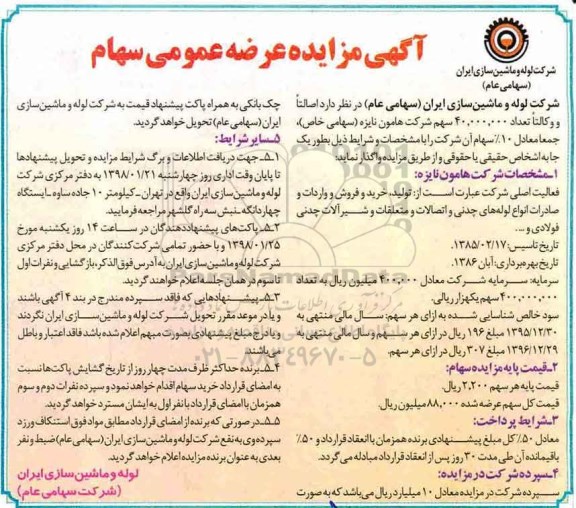 آگهی مزایده عرضه عمومی سهام
شرکت لوله و ماشین سازی ایران
(سهامی عام)
شرکت لوله و ماشین سازی ایران (سهامی عام) در نظر دارد اصالتاً
و وکالتاً تعداد ۴۰,۰۰۰,۰۰۰ سهم شرکت هامون نایزه (سهامی خاص)،
جمعا معادل ۱۰٪ سهام آن شرکت را با مشخصات و شرایط ذیل بطور یک
جا به اشخاص حقیقی یا حقوقی و از طریق مزایده واگذار نماید:
۱ـ مشخصات شرکت هامون نایزه:
فعالیت اصلی شرکت عبارت است از: تولید، خرید و فروش و واردات و
صادرات انواع لوله‌های چدنی و اتصالات و متعلقات و شیرآلات چدنی
فولادی و...
تاریخ تاسیس: ۱۳۸۵/۰۲/۱۷.
تاریخ بهره‌برداری: آبان ۱۳۸۶.
سرمایه: سرمایه شرکت معادل ۴۰۰,۰۰۰ میلیون ریال به تعداد
۴۰۰,۰۰۰,۰۰۰ سهم یکهزار ریالی.
سود خالص شناسایی شده به ازای هر سهم: سال مالی منتهی به
۱۳۹۵/۱۲/۳۰ مبلغ ۱۹۶ ریال در ازای هر سهم و سال مالی منتهی به
۱۳۹۶/۱۲/۲۹ مبلغ ۳۰۷ ریال در ازای هر سهم.
۲ـ قیمت پایه مزایده سهام:
قیمت پایه هر سهم ۲,۲۰۰ ریال.
قیمت کل سهم عرضه شده ۸۸,۰۰۰ میلیون ریال.
۳ـ شرایط پرداخت:
معادل ۵۰٪ کل مبلغ پیشنهادی برنده همزمان با انعقاد قرارداد و ۵۰٪
باقیمانده آن طی مدت ۳۰ روز پس از انعقاد قرارداد مبادله می گردد.
۴ـ سپرده شرکت در مزایده:
سپرده شرکت در مزایده معادل ۱۰ میلیارد ریال می‌باشد که به صورت
چک بانکی به همراه پاکت پیشنهاد قیمت به شرکت لوله و ماشین سازی
ایران (سهامی عام) تحویل خواهد گردید.
۵ـ سایر شرایط:
۵ـ۱ـ جهت دریافت اطلاعات و برگ شرایط مزایده و تحویل پیشنهادها
تا پایان وقت اداری روز چهارشنبه ۱۳۹۸/۰۱/۲۱ به دفتر مرکزی شرکت
لوله و ماشین سازی ایران واقع در تهران ـ کیلومتر ۱۰ جاده ساوه ـ ایستگاه
چهاردانگه ـ نبش سه راه گلشهر مراجعه فرمایید.
۵ـ۲ـ پاکت‌های پیشنهاددهندگان در ساعت ۱۴ روز یکشنبه مورخ
۱۳۹۸/۰۱/۲۵ و با حضور تمامی شرکت کنندگان در محل دفتر مرکزی
شرکت لوله و ماشین سازی ایران به آدرس فوق‌الذکر، بازگشایی و نفرات اول
تا سوم در همان جلسه اعلام خواهند گردید.
۵ـ۳ـ پیشنهادهایی که فاقد سپرده مندرج در بند ۴ آگهی باشند
و یا در موعد مقرر تحویل شرکت لوله و ماشین سازی ایران نگردند
و یا درج مبلغ پیشنهادی بصورت مبهم اعلام شده باشد فاقد اعتبار و باطل
می‌باشند.
۵ـ۴ـ برنده حداکثر ظرف مدت چهار روز از تاریخ گشایش پاکت‌ها نسبت
به امضای قرارداد خرید سهام اقدام خواهد نمود و سپرده نفرات دوم و سوم
همزمان با امضای قرارداد با نفر اول به ایشان مسترد خواهد گردید.
۵ـ۵ـ در صورتی که برنده از امضای قرارداد مطابق مواد فوق استنکاف ورزد
سپرده وی به نفع شرکت لوله و ماشین سازی ایران (سهامی عام) ضبط و نفر
بعدی به عنوان برنده مزایده اعلام خواهد گردید.
لوله و ماشین سازی ایران
(شرکت سهامی عام)
ParsNamadData
۰۲۱-۸۸۳۴۹۶۷۰-۵